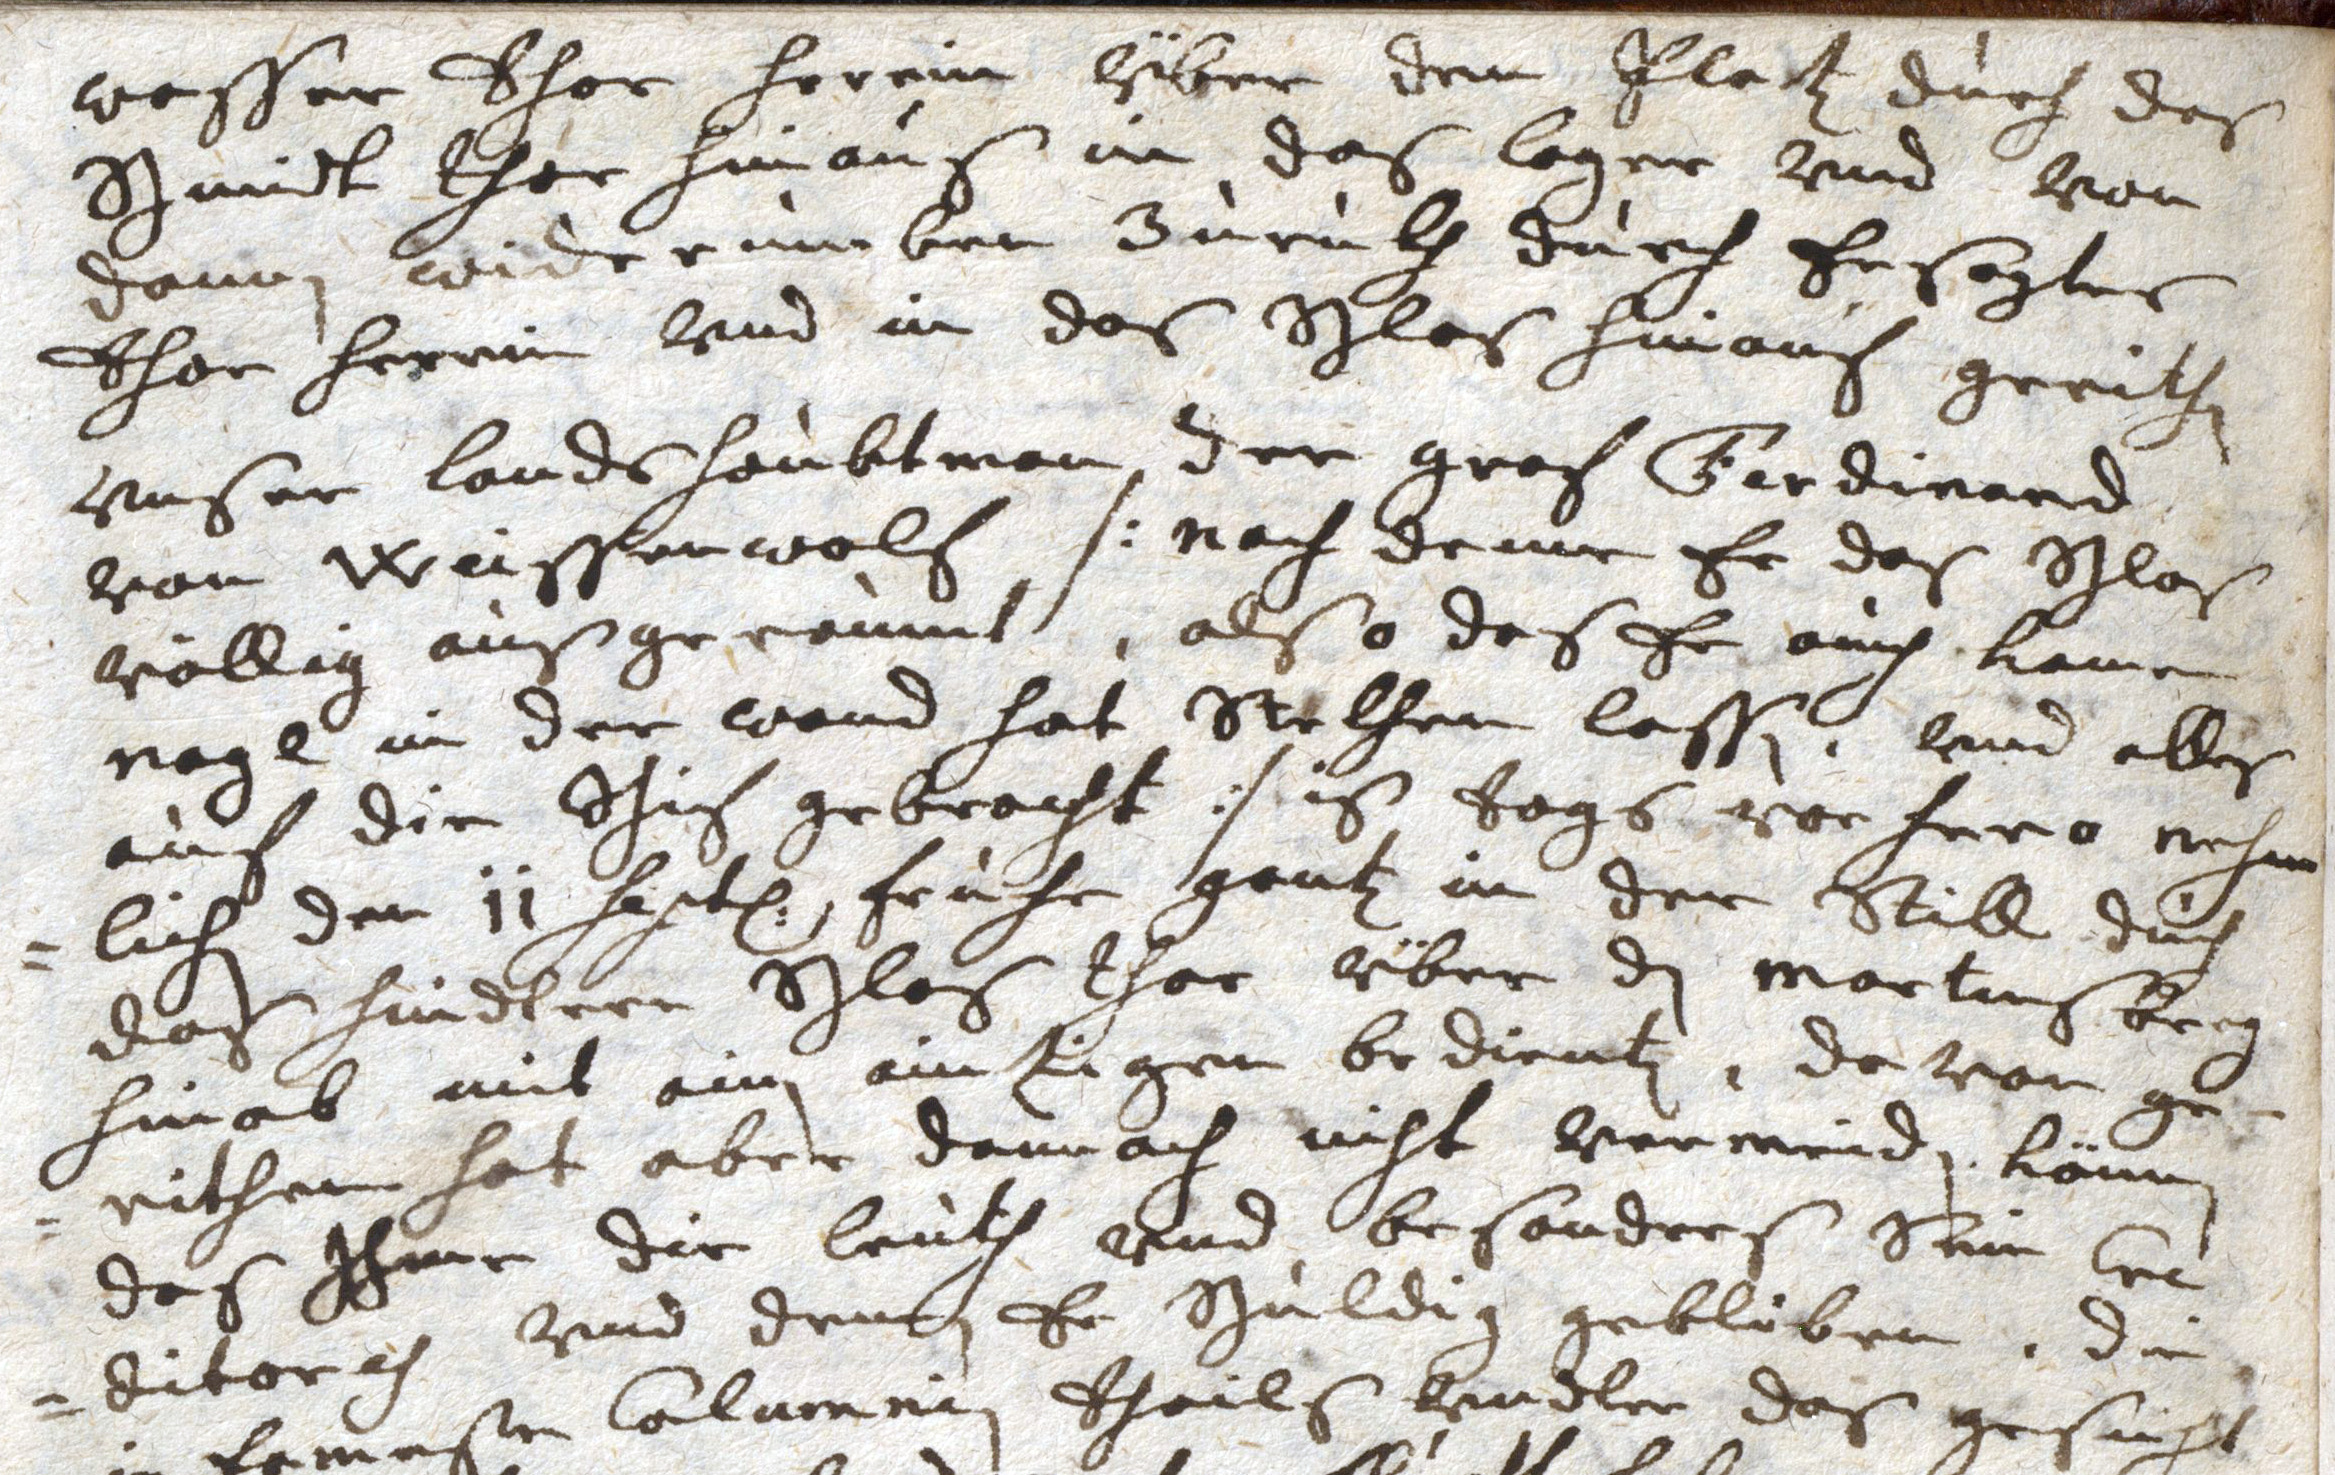 wasser Thor herein über den Platz durch das
Schmidt thor hinaus in das lager vnd von
dannen widerumben Zuruckh durch besagtes
Thor herein vnd in das Schlos hinauf geritten
vnser landshaubtman der graf Ferdinand
von Weissenwolf /: nach deme Er das Schlos
völlig ausgeraumt, also das Er auch kainen
nagl in der wand hat Steckhen lassen, vnd alles
auf die Schif gebracht :/ is tags vorhero nehm
=lich den 11 Septb: fruhe gantz in der Still durch
das hindtere Schlos thor über den martinsberg
hinab mit ainem aintzigen bedienten, davon ge-
=rithen hat aber dannach nicht vermeiden können
das Ihme die leuth vnd besonders Sein Cre
=ditores vnd denen Er Schuldig gebliben, die
Calumnien Theils vndter das gesicht